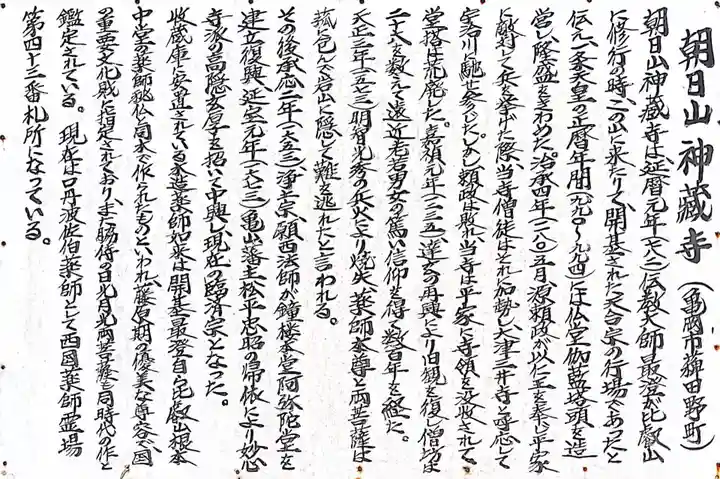 朝日山 神蔵寺 (亀岡市薭田野町)
朝日山神蔵寺は、延暦元年(七八二)伝教大師最澄が比叡山
に修行の時、この山に来たりて開基された天台宗の行場であったと
伝え、一条天皇の正暦年間(九九〇〜九九四)には仏堂伽藍塔頭を造
営し、隆盛をきわめた。治承四年(一一八〇)五月、源頼政が以仁王を奉じ平家
に敵対して兵を挙げた際、当寺僧徒はそれに加勢し、大津三井寺と呼応して
宇治川に馳せ参じた。しかし頼政は敗れ、当寺は平家に寺領を没収されて
堂塔は荒廃した。嘉禎元年(一二三五)達玄の再興により旧観を復し僧坊は
二十六を数えて遠近老若男女の篤い信仰を得て数百年を経た。
天正三年(一五七三)明智光秀の兵火により焼失、薬師本尊と両菩薩は
菰に包んで岩山に隠して難を逃れたと言われる。
その後承応二年(一六五三)浄土宗、願西法師が鐘楼、本堂、阿弥陀堂を
建立復興、延宝元年(一六七三)亀山藩主松平忠昭の帰依により妙心
寺派の高隠玄厚を招いて中興し、現在の臨済宗となった。
収蔵庫に安置されている木造薬師如来は、開基最澄自ら比叡山根本
中堂の薬師秘仏同木で作られたものといわれ、藤原期の優美な尊容で、国
の重要文化財に指定されており、また脇侍の日光月光両菩薩も同時代の作と
鑑定されている。現在は口丹波佐伯薬師として西国薬師霊場
第四十三番札所になっている。